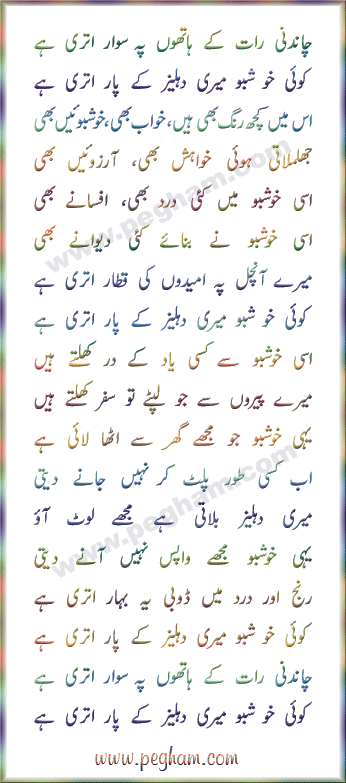 چاندنی رات کے ہاتھوں پہ سوار اتری ہے
کوئی خو شبو میری دہلیز کے پار اتری ہے
اس میں کچھ رنگ بھی ہیں، خواب بھی، خوشبوئیں بھی
جھلملاتی ہوئی خواہش بھی، آرزوئیں بھی
اسی خوشبو میں کئی درد بھی، افسانے بھی
اسی خوشبو نے بنائے کئی دیوانے بھی
میرے آنچل پہ امیدوں کی قطار اتری ہے
کوئی خو شبو میری دہلیز کے پار اتری ہے
اسی خوشبو سے کسی یاد کے در کھلتے ہیں
میرے پیروں سے جو لپٹے تو سفر کھلتے ہیں
یہی خوشبو جو مجھے گھر سے اٹھا لائی ہے
اب کسی طور پلٹ کر نہیں جانے دیتی
میری دہلیز بلاتی ہے مجھے لوٹ آؤ
یہی خوشبو مجھے واپس نہیں آنے دیتی
رنج اور درد میں ڈوبی یہ بہار اتری ہے
کوئی خو شبو میری دہلیز کے پار اتری ہے
چاندنی رات کے ہاتھوں پہ سوار اتری ہے
کوئی خو شبو میری دہلیز کے پار اتری ہے
www.pegham.com
www.pegham.com
www.pegham.com